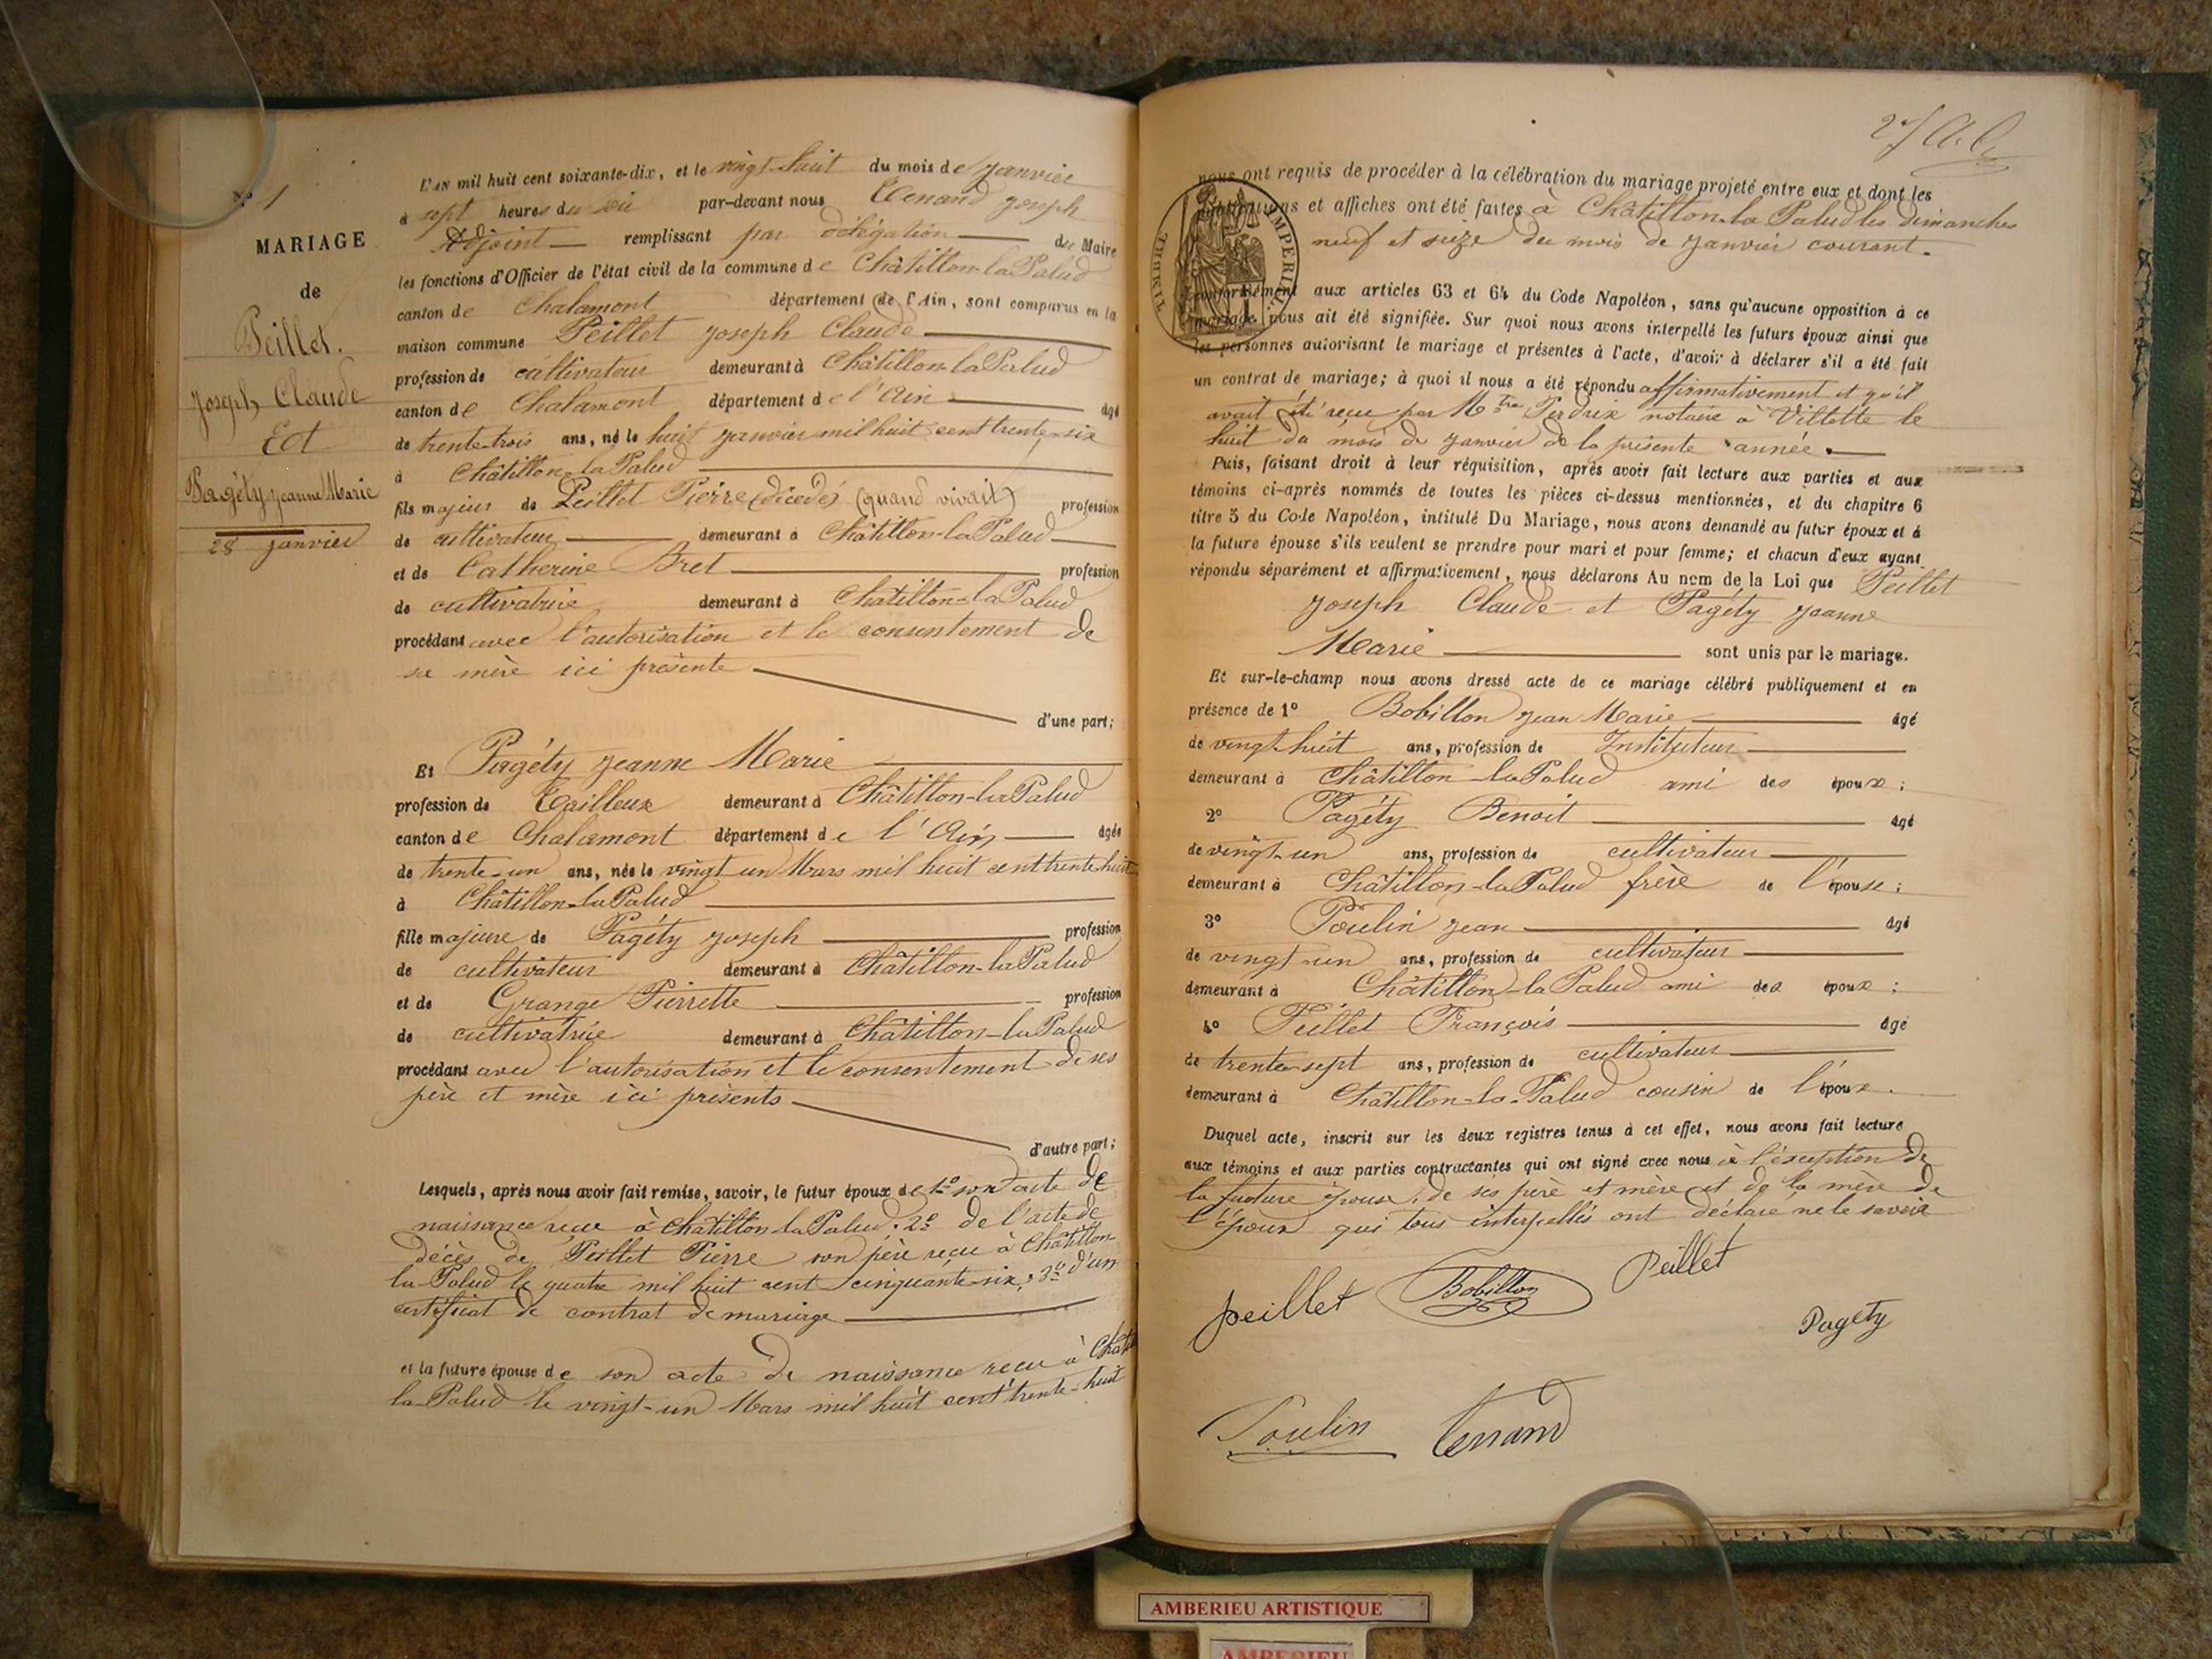 N° 1
MARIAGE
de
Peillet.
Joseph Claude
Et
Pagéty Jeanne Marie
28 Janvier
L'AN mil huit cent soixante-dix, et le vingt-huit du mois de Janvier
à sept heures du soir par-devant nous Joseph
Adjoint remplissant par délégation du Maire
les fonctions d'Officier de l'état civil de la commune de Châtillon-la-Palud
canton de Chalamont département de l'Ain, sont comparus en la
maison commune Peillet Joseph Claude
profession de cultivateur demeurant à Châtillon-la-Palud
canton de Chalamont département de l'Ain âgé
de trente-trois ans, né le huit Janvier mil huit cent trente-six
à Châtillon-la-Palud
fils majeur de Peillet Pierre (décédé) (quand vivait) profession
de cultivateur demeurant à Châtillon-la-Palud
et de Catherine Bret profession
de cultivatrice demeurant à Châtillon-la-Palud
procédant avec l'autorisation et le consentement de
sa mère ici présente
d'une part;
Et Pagéty Jeanne Marie
profession de Tailleuse demeurant à Châtillon-la-Palud
canton de Chalamont département de l'Ain âgée
de trente-un ans, née le vingt-un Mars mil huit cent trente-huit
à Châtillon-la-Palud
fille majeure de Pagéty Joseph profession
de cultivateur demeurant à Châtillon-la-Palud
et de Grange Pierrette profession
de cultivatrice demeurant à Châtillon-la-Palud
procédant avec l'autorisation et le consentement de ses
père et mère ici présents
d'autre part;
Lesquels, après nous avoir fait remise, savoir, le futur époux de 1° son acte de
naissance reçu à Châtillon-la-Palud; 2° de l'acte de
décès de Peillet Pierre son père reçu à Châtillon-
la-Palud le quatre mil huit cent cinquante-six; 3° d'un
certificat de contrat de mariage
et la future épouse de son acte de naissance reçu à
la-Palud le vingt-un Mars mil huit cent trente-huit
nous ont requis de procéder à la célébration du mariage projeté entre eux et dont les
publications et affiches ont été faites à Châtillon-la-Palud les dimanches
neuf et seize du mois de Janvier courant.
TIMBRE IMPERIAL
conformément aux articles 63 et 64 du Code Napoléon, sans qu'aucune opposition à ce
mariage nous ait été signifiée. Sur quoi nous avons interpellé les futurs époux ainsi que
les personnes autorisant le mariage et présentes à l'acte, d'avoir à déclarer s'il a été fait
un contrat de mariage; à quoi il nous a été répondu affirmativement et qu'il
avait été reçu par Mtre Perdrix notaire à Villette le
huit du mois de Janvier de la présente année.
Puis, faisant droit à leur réquisition, après avoir fait lecture aux parties et aux
témoins ci-après nommés de toutes les pièces ci-dessus mentionnées, et du chapitre 6
titre 5 du Code Napoléon, intitulé Du Mariage, nous avons demandé au futur époux et à
la future épouse s'ils veulent se prendre pour mari et pour femme; et chacun d'eux ayant
répondu séparément et affirmativement, nous déclarons Au nom de la Loi que Peillet
Joseph Claude et Pagéty Jeanne
Marie sont unis par le mariage.
Et sur-le-champ nous avons dressé acte de ce mariage célébré publiquement et en
présence de 1° Bobillon Jean Marie âgé
de vingt-huit ans, profession de Instituteur
demeurant à Châtillon-la-Palud ami des époux;
2° Pagéty Benoît âgé
de vingt-un ans, profession de cultivateur
demeurant à Châtillon-la-Palud frère de l'épouse;
3° Poulin Jean âgé
de vingt-un ans, profession de cultivateur
demeurant à Châtillon-la-Palud ami des époux;
4° Peillet François âgé
de trente-sept ans, profession de cultivateur
demeurant à Châtillon-la-Palud cousin de l'époux.
Duquel acte, inscrit sur les deux registres tenus à cet effet, nous avons fait lecture
aux témoins et aux parties contractantes qui ont signé avec nous à l'exception de
la future épouse, de ses père et mère et de la mère de
l'époux qui tous interpellés ont déclaré ne le savoir
peillet Bobillon Peillet
Pagéty
Poulin
AMBERIEU ARTISTIQUE
AMBERIEU